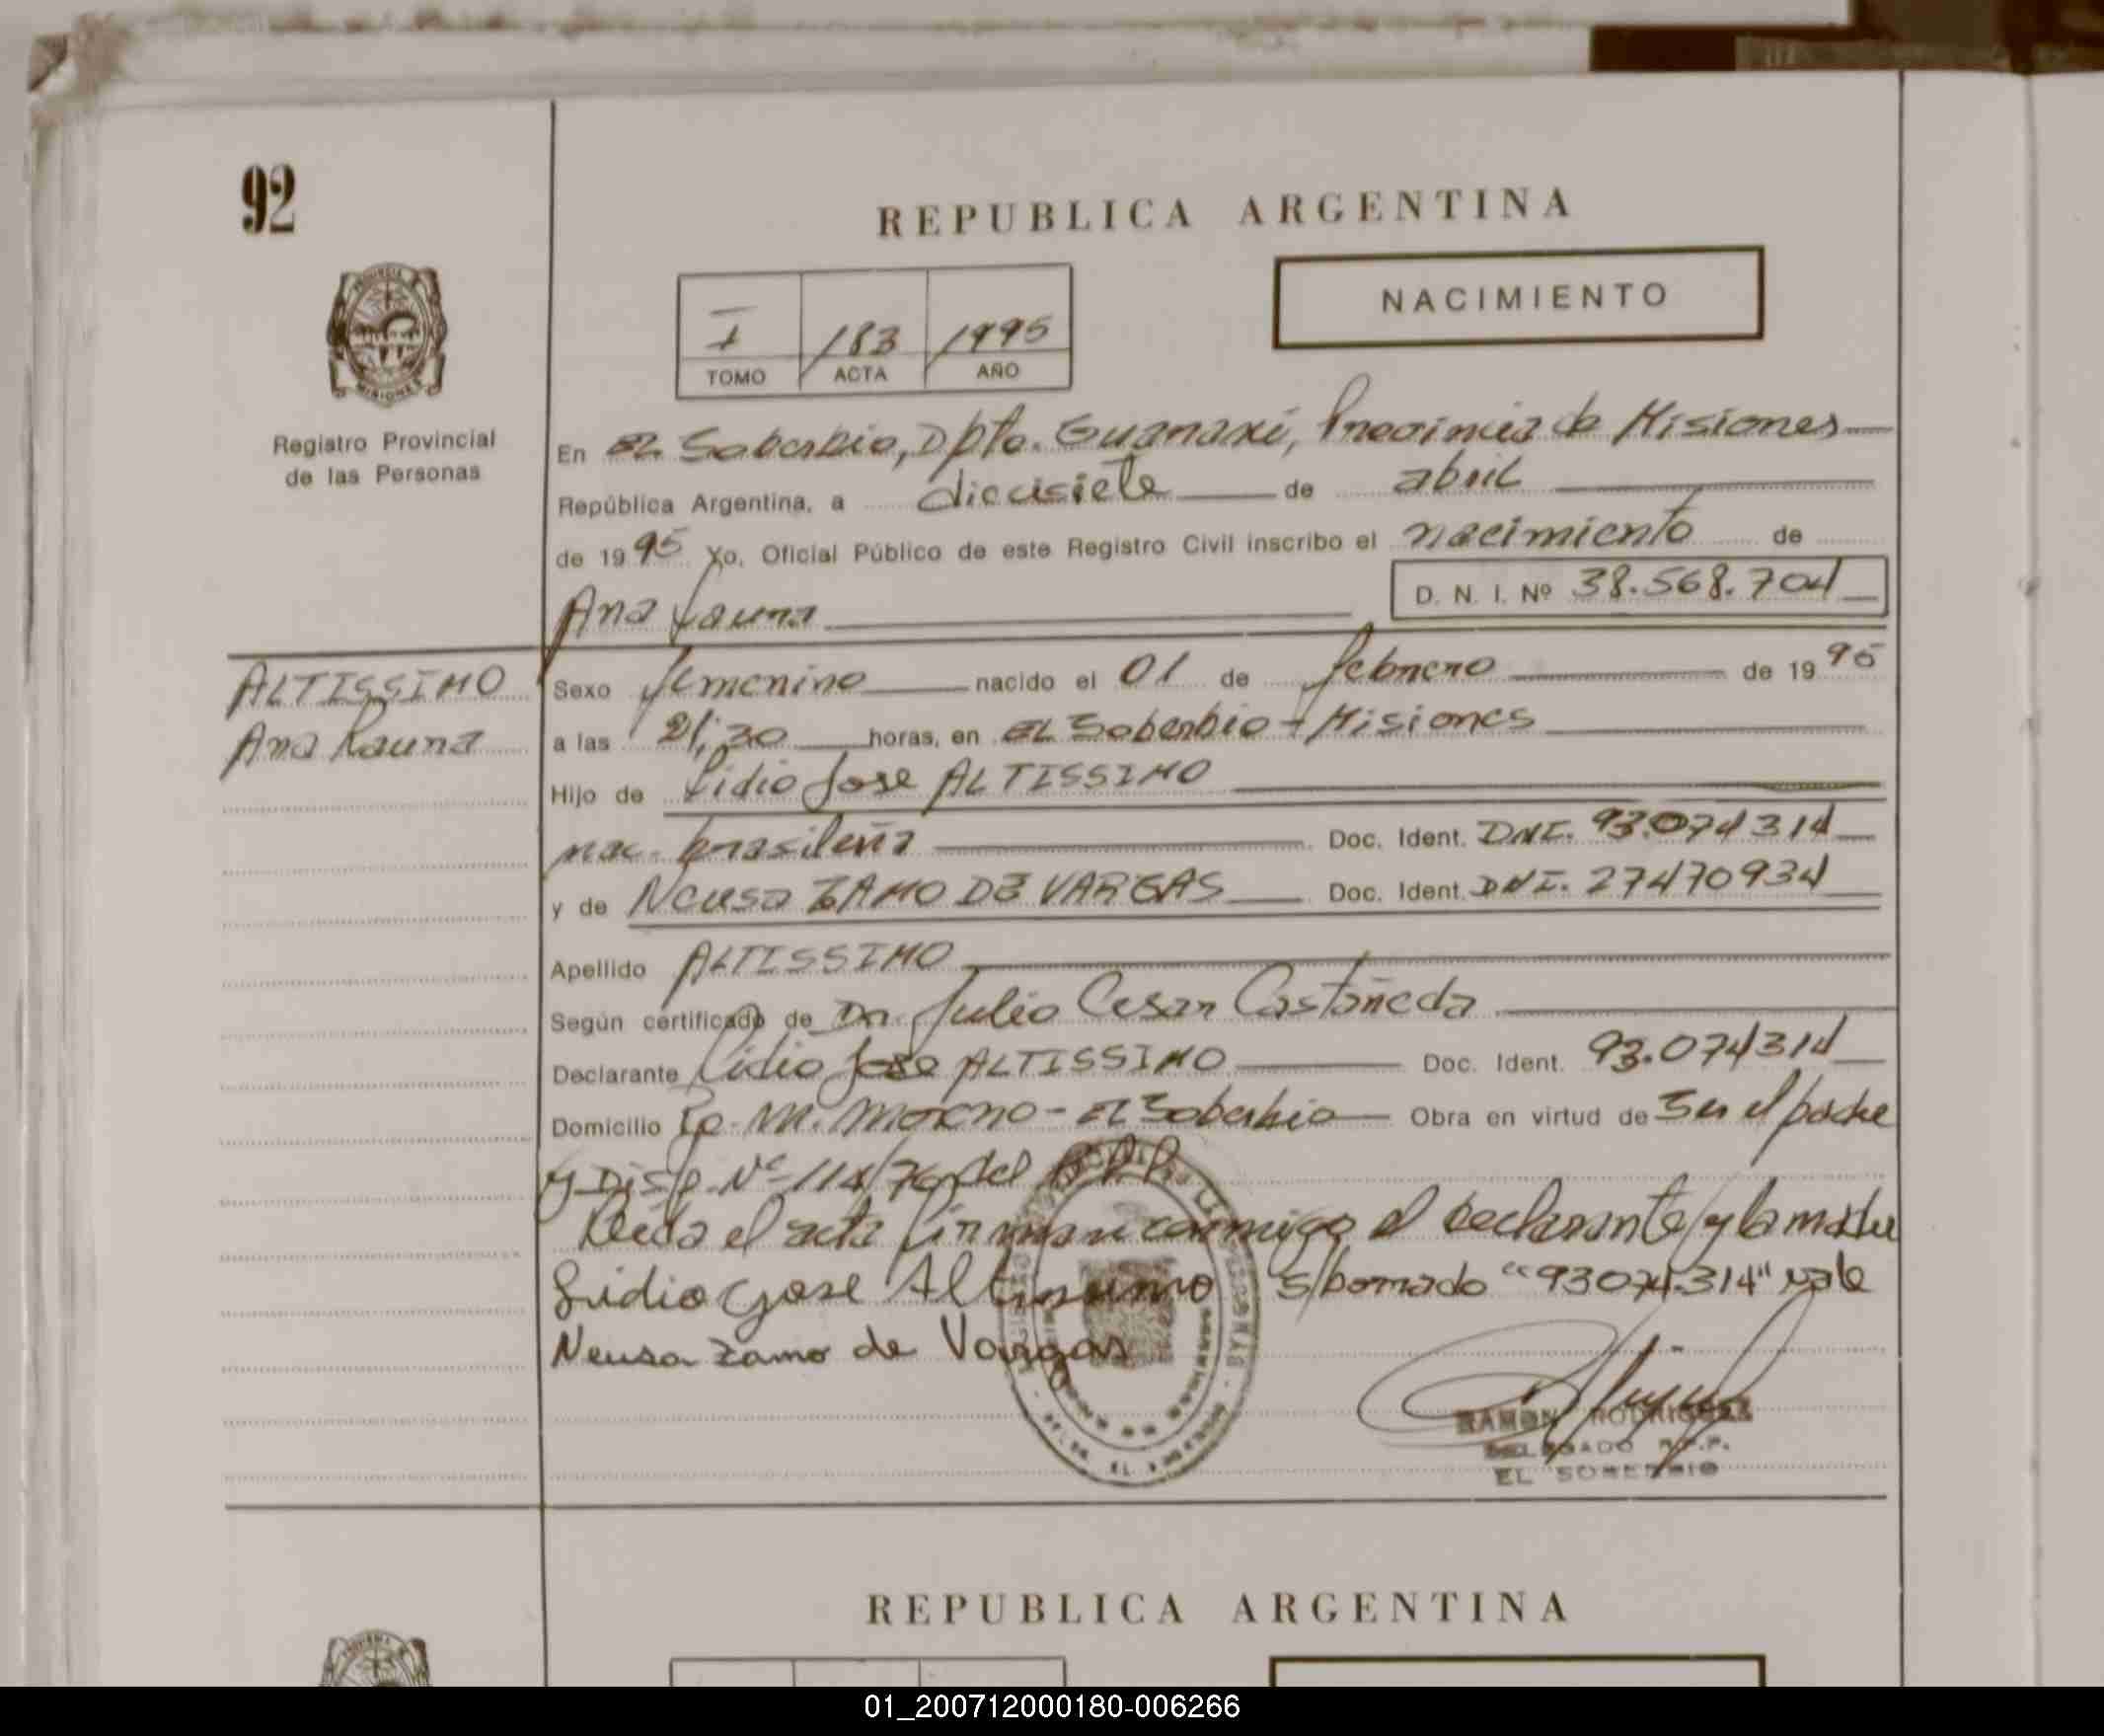 92
REPUBLICA ARGENTINA
NACIMIENTO
I 183 1995
TOMO ACTA AÑO
Registro Provincial
de las Personas
En El Soberbio, Dpto. Guarani, Provincia de Misiones
República Argentina, a diecisiete de abril
de 1995 Yo, Oficial Público de este Registro Civil inscribo el nacimiento de
D. N. I. Nº 38.568.704
Ana Laura
ALTISSIMO
Ana Laura
Sexo femenino nacido el 01 de febrero de 1995
a las 21,30 horas, en El Soberbio - Misiones
Hijo de Lidio Jose ALTISSIMO
nac. brasileña Doc. Ident. DNI. 93.074314
y de Neusa ZAMO DE VARGAS Doc. Ident. DNI. 27470934
Apellido ALTISSIMO
Según certificado de Dr. Julio Cesar Castañeda
Declarante Lidio Jose ALTISSIMO Doc. Ident. 93.074314
Domicilio M. Moreno - El Soberbio Obra en virtud de Ser el padre
y Disp. Nº 114/76 del R.P.P.
Leida el acta firman conmigo el declarante y la madre
Lidio Jose Altissimo S/borrado "93074.314" vale
Neusa Zamo de Vargas
RAMON RODRIGUEZ
DELEGADO R.P.P.
EL SOBERBIO
REPUBLICA ARGENTINA
01_200712000180-006266